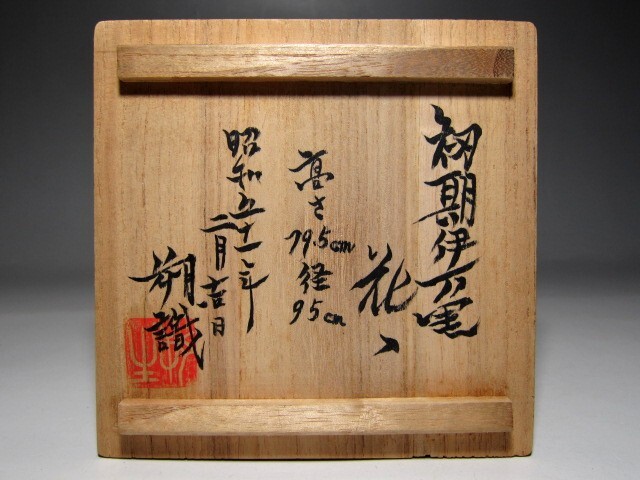 初期伊万里
花入
高さ
19.5cm
径
9.5cm
昭和五十一年
二月吉日
朔識